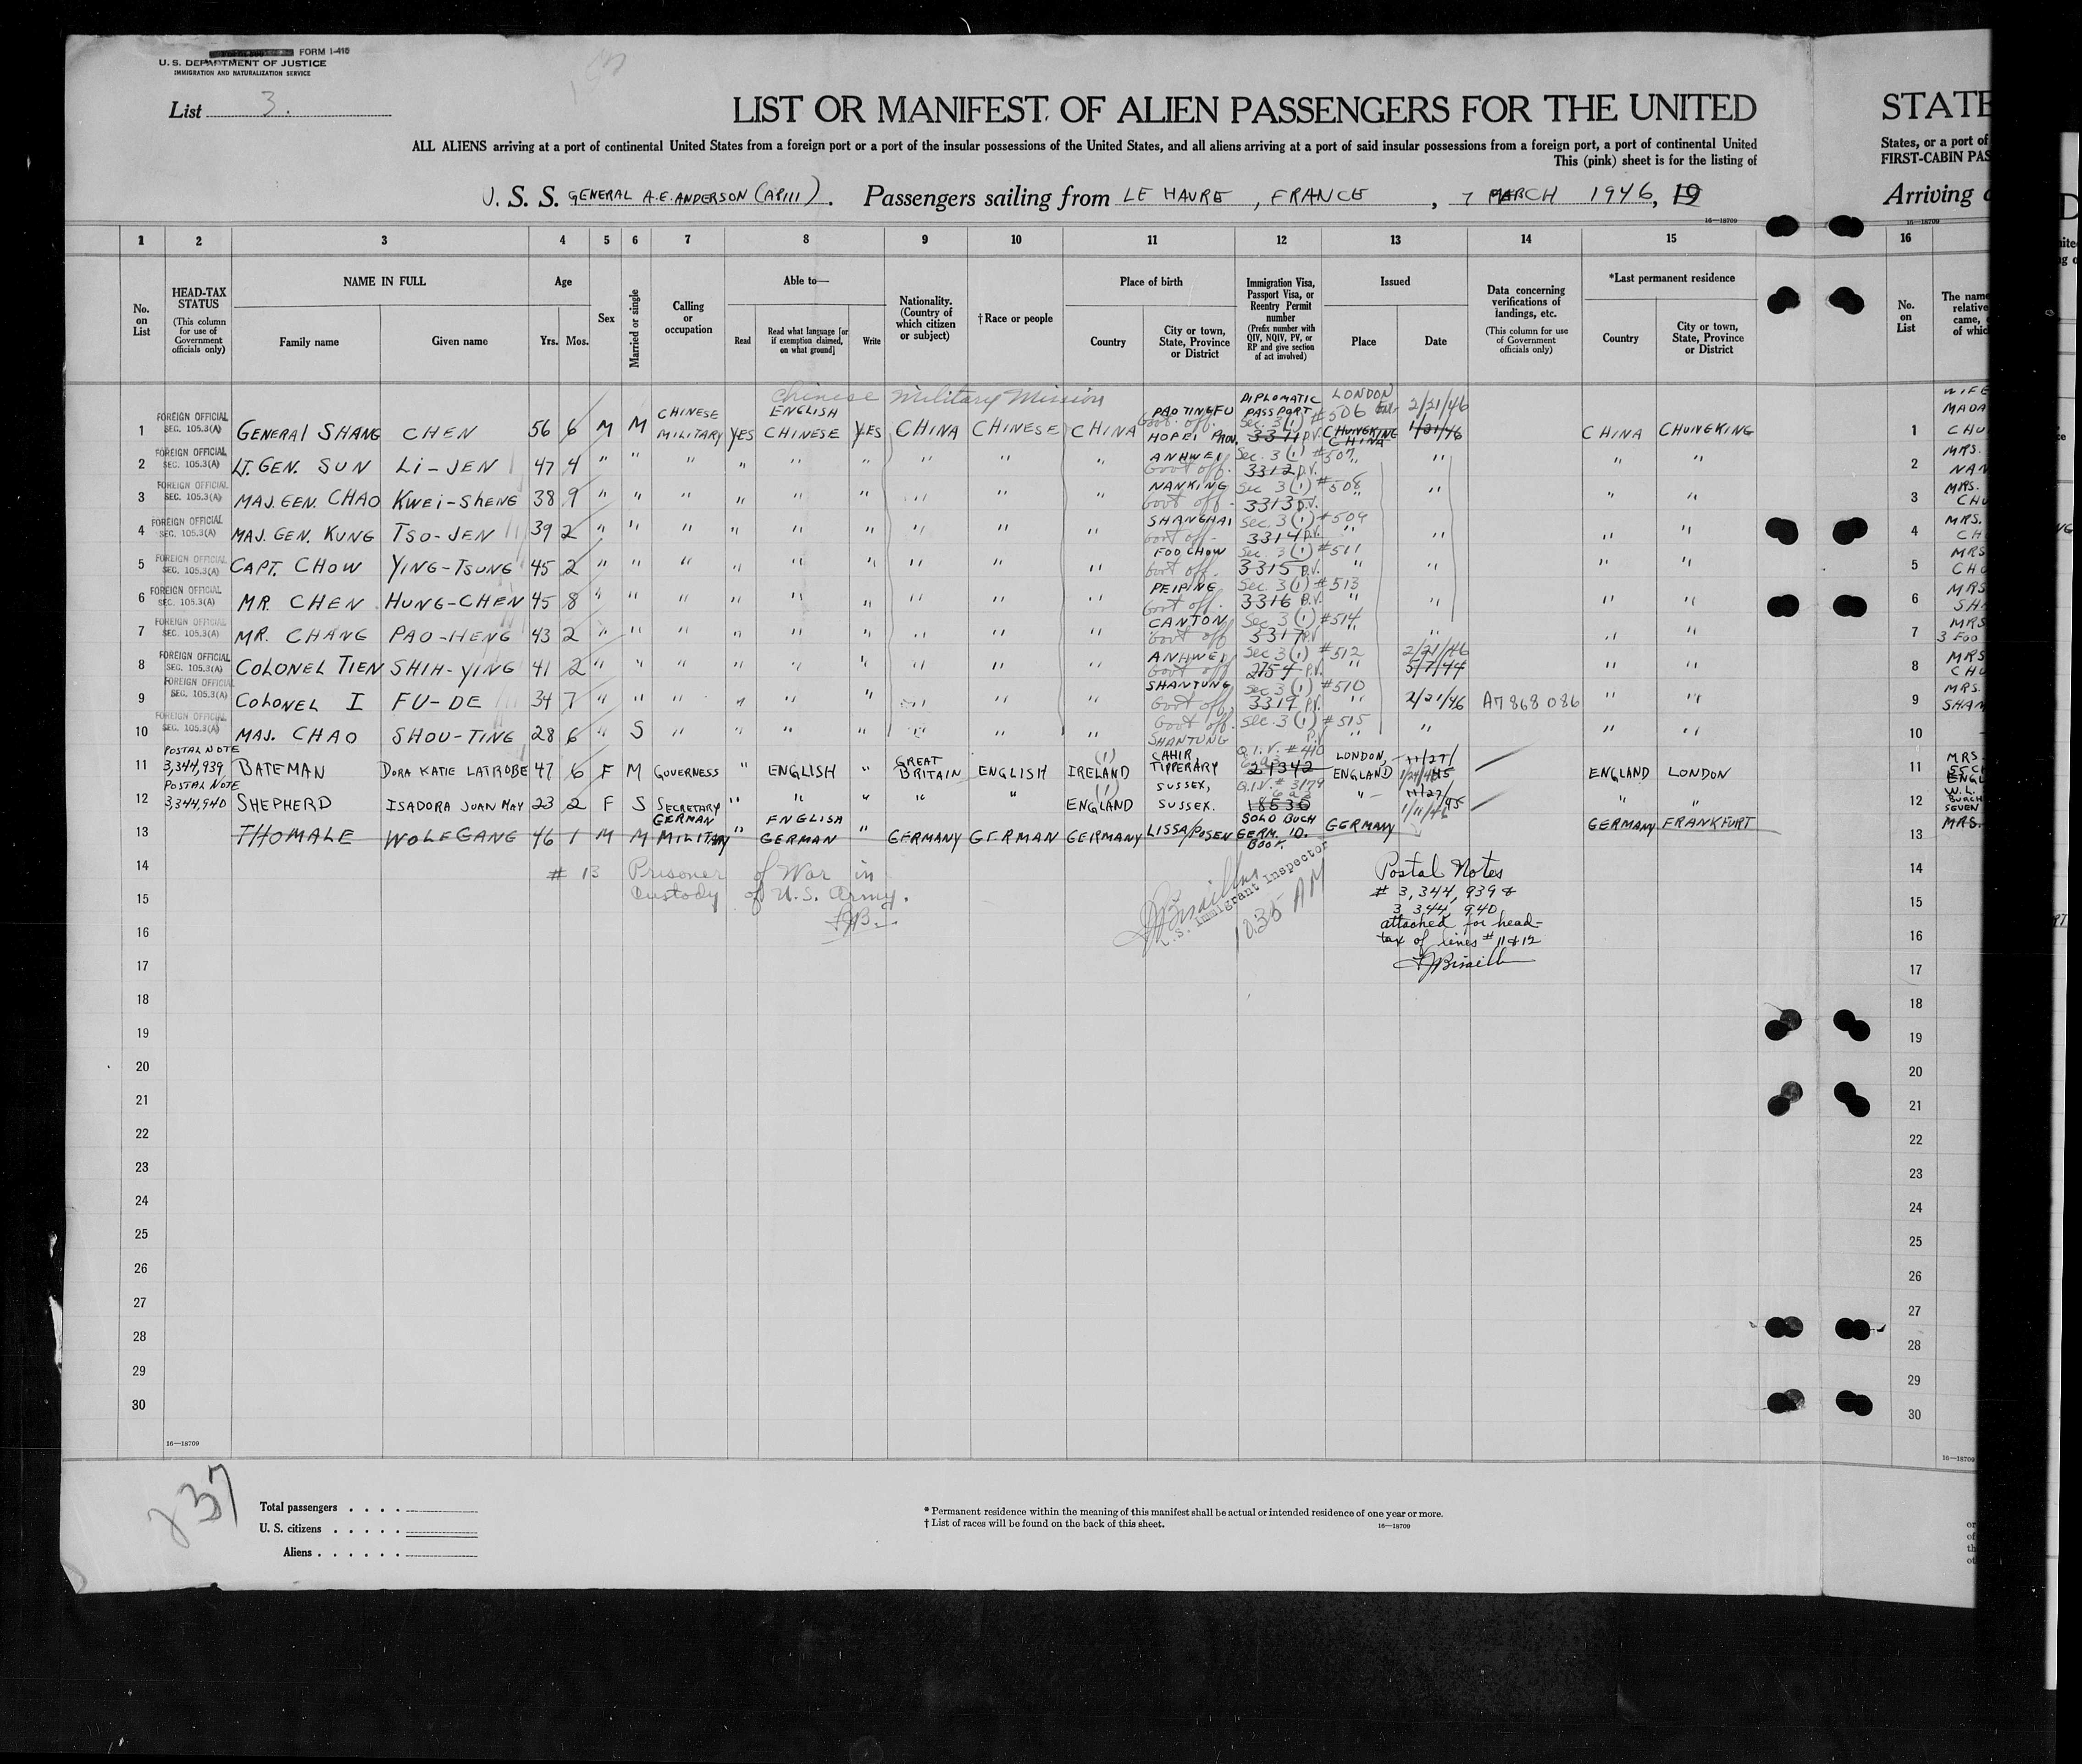 FORM I-410
U. S. DEPARTMENT OF JUSTICE
IMMIGRATION AND NATURALIZATION SERVICE
List 3.
LIST OR MANIFEST OF ALIEN PASSENGERS FOR THE UNITED
STATE
ALL ALIENS arriving at a port of continental United States from a foreign port or a port of the insular possessions of the United States, and all aliens arriving at a port of said insular possessions from a foreign port, a port of continental United
States, or a port of
This (pink) sheet is for the listing of
FIRST-CABIN PAS
U. S. S. GENERAL A.E. ANDERSON (AP111). Passengers sailing from LE HAVRE, FRANCE, 7 MARCH 1946, 19
Arriving
16—18709 16—18709
1 2 3 4 5 6 7 8 9 10 11 12 13 14 15 16
No. on List
HEAD-TAX STATUS (This column for use of Government officials only)
NAME IN FULL Family name Given name
Age Yrs. Mos.
Sex
Married or single
Calling or occupation
Able to— Read Read what language [or if exemption claimed, on what ground] Write
Nationality. (Country of which citizen or subject)
†Race or people
Place of birth Country City or town, State, Province or District
Immigration Visa, Passport Visa, or Reentry Permit number (Prefix number with QIV, NQIV, PV, or RP and give section of act involved)
Issued Place Date
Data concerning verifications of landings, etc. (This column for use of Government officials only)
*Last permanent residence Country City or town, State, Province or District
No. on List
The name relative came, of whic
Chinese Military Mission
1 FOREIGN OFFICIAL SEC. 105.3(A) GENERAL SHANG CHEN 56 6 M M CHINESE MILITARY YES ENGLISH CHINESE YES CHINA CHINESE CHINA PAOTINGFU Govt. off. HOPEI PROV. DIPLOMATIC PASSPORT Sec. 3(1) #506 3371 P.V. LONDON CHUNGKING CHINA 2/21/46 1/21/46 CHINA CHUNGKING 1 WIFE MADA CHU
2 FOREIGN OFFICIAL SEC. 105.3(A) LT. GEN. SUN LI-JEN 47 4 " " " " " " " " " ANHWEI Govt off. Sec. 3(1) #507 3312 P.V. " " " " 2 MRS. NAN
3 FOREIGN OFFICIAL SEC. 105.3(A) MAJ. GEN. CHAO KWEI-SHENG 38 9 " " " " " " " " " NANKING Govt off. Sec 3(1) #508 3313 P.V. " " " " 3 MRS. CHU
4 FOREIGN OFFICIAL SEC. 105.3(A) MAJ. GEN. KUNG TSO-JEN 39 2 " " " " " " " " " SHANGHAI Govt off. Sec. 3(1) #509 3314 P.V. " " " " 4 MRS. CH
5 FOREIGN OFFICIAL SEC. 105.3(A) CAPT. CHOW YING-TSUNG 45 2 " " " " " " " " " FOOCHOW Govt off. Sec. 3(1) #511 3315 P.V. " " " " 5 MRS CHU
6 FOREIGN OFFICIAL SEC. 105.3(A) MR. CHEN HUNG-CHEN 45 8 " " " " " " " " " PEIPING Govt off. Sec 3(1) #513 3316 P.V. " " " " 6 MRS SHA
7 FOREIGN OFFICIAL SEC. 105.3(A) MR. CHANG PAO-HENG 43 2 " " " " " " " " " CANTON Govt off Sec 3(1) #514 3317 P.V. " " " " 7 MRS 3 FOO
8 FOREIGN OFFICIAL SEC. 105.3(A) COLONEL TIEN SHIH-YING 41 2 " " " " " " " " " ANHWEI Govt off Sec 3(1) #512 2754 P.V. " 2/21/46 5/7/44 " " 8 MRS CHU
9 FOREIGN OFFICIAL SEC. 105.3(A) COLONEL I FU-DE 34 7 " " " " " " " " " SHANTUNG Govt off. Sec 3(1) #510 3319 P.V. " 2/21/46 A7 868 086 " " 9 MRS. SHAN
10 FOREIGN OFFICIAL SEC. 105.3(A) MAJ. CHAO SHOU-TING 28 6 " S " " " " " " " Govt off. SHANTUNG Sec. 3(1) #515 P.V. " " " " 10
11 POSTAL NOTE 3,344,939 BATEMAN DORA KATIE LATROBE 47 6 F M GOVERNESS " ENGLISH " GREAT BRITAIN ENGLISH (1) IRELAND CAHIR, TIPPERARY Q.I.V. #410 21342 LONDON, ENGLAND 11/27/45 ENGLAND LONDON 11 MRS. ENGL
12 POSTAL NOTE 3,344,940 SHEPHERD ISADORA JOAN MAY 23 2 F S SECRETARY " " " " " (1) ENGLAND SUSSEX, SUSSEX. Q.I.V. # 3179 18536 " 11/27/45 1/11/46 " " 12 W.L. BURCH SEVEN
13 THOMALE WOLFGANG 46 1 M M GERMAN MILITARY " ENGLISH GERMAN " GERMANY GERMAN GERMANY LISSA/POSEN SOLD BUCH GERM. ID. BOOK. GERMANY GERMANY FRANKFURT 13 MRS.
14 # 13 Prisoner of War in 14
15 custody of U.S. Army. 15
U.S. Immigrant Inspector
1035 AM
Postal Notes
# 3,344,939 &
3,344,940
attached for head-
tax of lines # 11 & 12
16 16
17 17
18 18
19 19
20 20
21 21
22 22
23 23
24 24
25 25
26 26
27 27
28 28
29 29
30 30
16—18709 16—18709
237
Total passengers . . . .
U. S. citizens . . . . .
Aliens . . . . . .
* Permanent residence within the meaning of this manifest shall be actual or intended residence of one year or more.
† List of races will be found on the back of this sheet. 16—18709